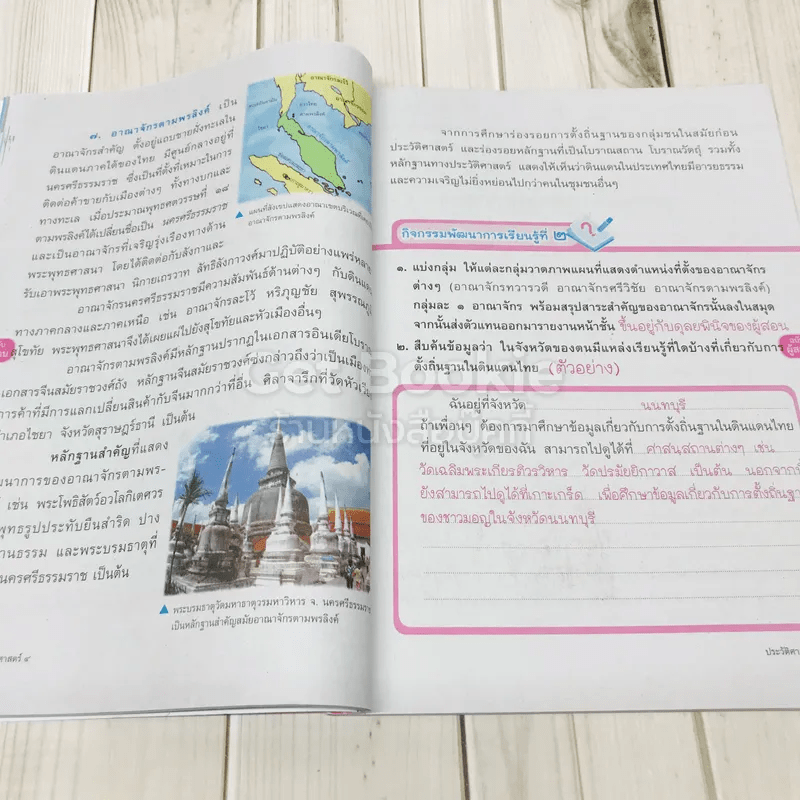 ๗. อาณาจักรตามพรลิงค์ เป็น
อาณาจักรสำคัญ ตั้งอยู่แถบชายฝั่งทะเลใน
ดินแดนภาคใต้ของไทย มีศูนย์กลางอยู่ที่
นครศรีธรรมราช ซึ่งเป็นที่ตั้งที่เหมาะในการ
ติดต่อค้าขายกับเมืองต่างๆ ทั้งทางบกและ
ทางทะเล เมื่อประมาณพุทธศตวรรษที่ ๑๘
ตามพรลิงค์ได้เปลี่ยนชื่อเป็น นครศรีธรรมราช
และเป็นอาณาจักรที่เจริญรุ่งเรืองทางด้าน
พระพุทธศาสนา โดยได้ติดต่อกับลังกาและ
รับเอาพระพุทธศาสนา นิกายเถรวาท ลัทธิลังกาวงศ์มาปฏิบัติอย่างแพร่หลาย
อาณาจักรนครศรีธรรมราชมีความสัมพันธ์ด้านต่างๆ กับดินแดน
ทางภาคกลางและภาคเหนือ เช่น อาณาจักรละโว้ หริภุญชัย สุพรรณภูมิ
สุโขทัย พระพุทธศาสนาจึงได้เผยแผ่ไปยังสุโขทัยและหัวเมืองอื่นๆ
อาณาจักรตามพรลิงค์มีหลักฐานปรากฏในเอกสารอินเดียโบราณ
เอกสารจีนสมัยราชวงศ์ถัง หลักฐานจีนสมัยราชวงศ์ซ่งกล่าวถึงว่าเป็นเมืองท่า
การค้าที่มีการแลกเปลี่ยนสินค้ากับจีนมากกว่าที่อื่น ศิลาจารึกที่วัดหัวเวียง
อำเภอไชยา จังหวัดสุราษฎร์ธานี เป็นต้น
หลักฐานสำคัญที่แสดง
นาการของอาณาจักรตามพร-
เช่น พระโพธิสัตว์อวโลกิเตศวร
พุทธรูปประทับยืนสำริด ปาง
านธรรม และพระบรมธาตุที่
นครศรีธรรมราช เป็นต้น
อาณาจักรละโว้
แผนที่สังเขปแสดงอาณาเขตบริเวณที่ตั้ง
อาณาจักรตามพรลิงค์
พระบรมธาตุวัดมหาธาตุวรมหาวิหาร จ. นครศรีธรรมราช
เป็นหลักฐานสำคัญสมัยอาณาจักรตามพรลิงค์
าสตร์ ๔
จากการศึกษาร่องรอยการตั้งถิ่นฐานของกลุ่มชนในสมัยก่อน
ประวัติศาสตร์ และร่องรอยหลักฐานที่เป็นโบราณสถาน โบราณวัตถุ รวมทั้ง
หลักฐานทางประวัติศาสตร์ แสดงให้เห็นว่าดินแดนในประเทศไทยมีอารยธรรม
และความเจริญไม่ยิ่งหย่อนไปกว่าคนในชุมชนอื่นๆ
กิจกรรมพัฒนาการเรียนรู้ที่ ๒
๑. แบ่งกลุ่ม ให้แต่ละกลุ่มวาดภาพแผนที่แสดงตำแหน่งที่ตั้งของอาณาจักร
ต่างๆ (อาณาจักรทวารวดี อาณาจักรศรีวิชัย อาณาจักรตามพรลิงค์)
กลุ่มละ ๑ อาณาจักร พร้อมสรุปสาระสำคัญของอาณาจักรนั้นลงในสมุด
จากนั้นส่งตัวแทนออกมารายงานหน้าชั้น ขึ้นอยู่กับดุลยพินิจของผู้สอน
๒. สืบค้นข้อมูลว่า ในจังหวัดของตนมีแหล่งเรียนรู้ที่ใดบ้างที่เกี่ยวกับการ
ตั้งถิ่นฐานในดินแดนไทย (ตัวอย่าง)
ฉันอยู่ที่จังหวัด นนทบุรี
ถ้าเพื่อนๆ ต้องการมาศึกษาข้อมูลเกี่ยวกับการตั้งถิ่นฐานในดินแดนไทย
ที่อยู่ในจังหวัดของฉัน สามารถไปดูได้ที่ ศาสนสถานต่างๆ เช่น
วัดเฉลิมพระเกียรติวรวิหาร วัดปรมัยยิกาวาส เป็นต้น นอกจากนี้
ยังสามารถไปดูได้ที่เกาะเกร็ด เพื่อศึกษาข้อมูลเกี่ยวกับการตั้งถิ่นฐาน
ของชาวมอญในจังหวัดนนทบุรี
ประวัติศา
Get Bookie
ร้านหนังสือบุ๊คกี้